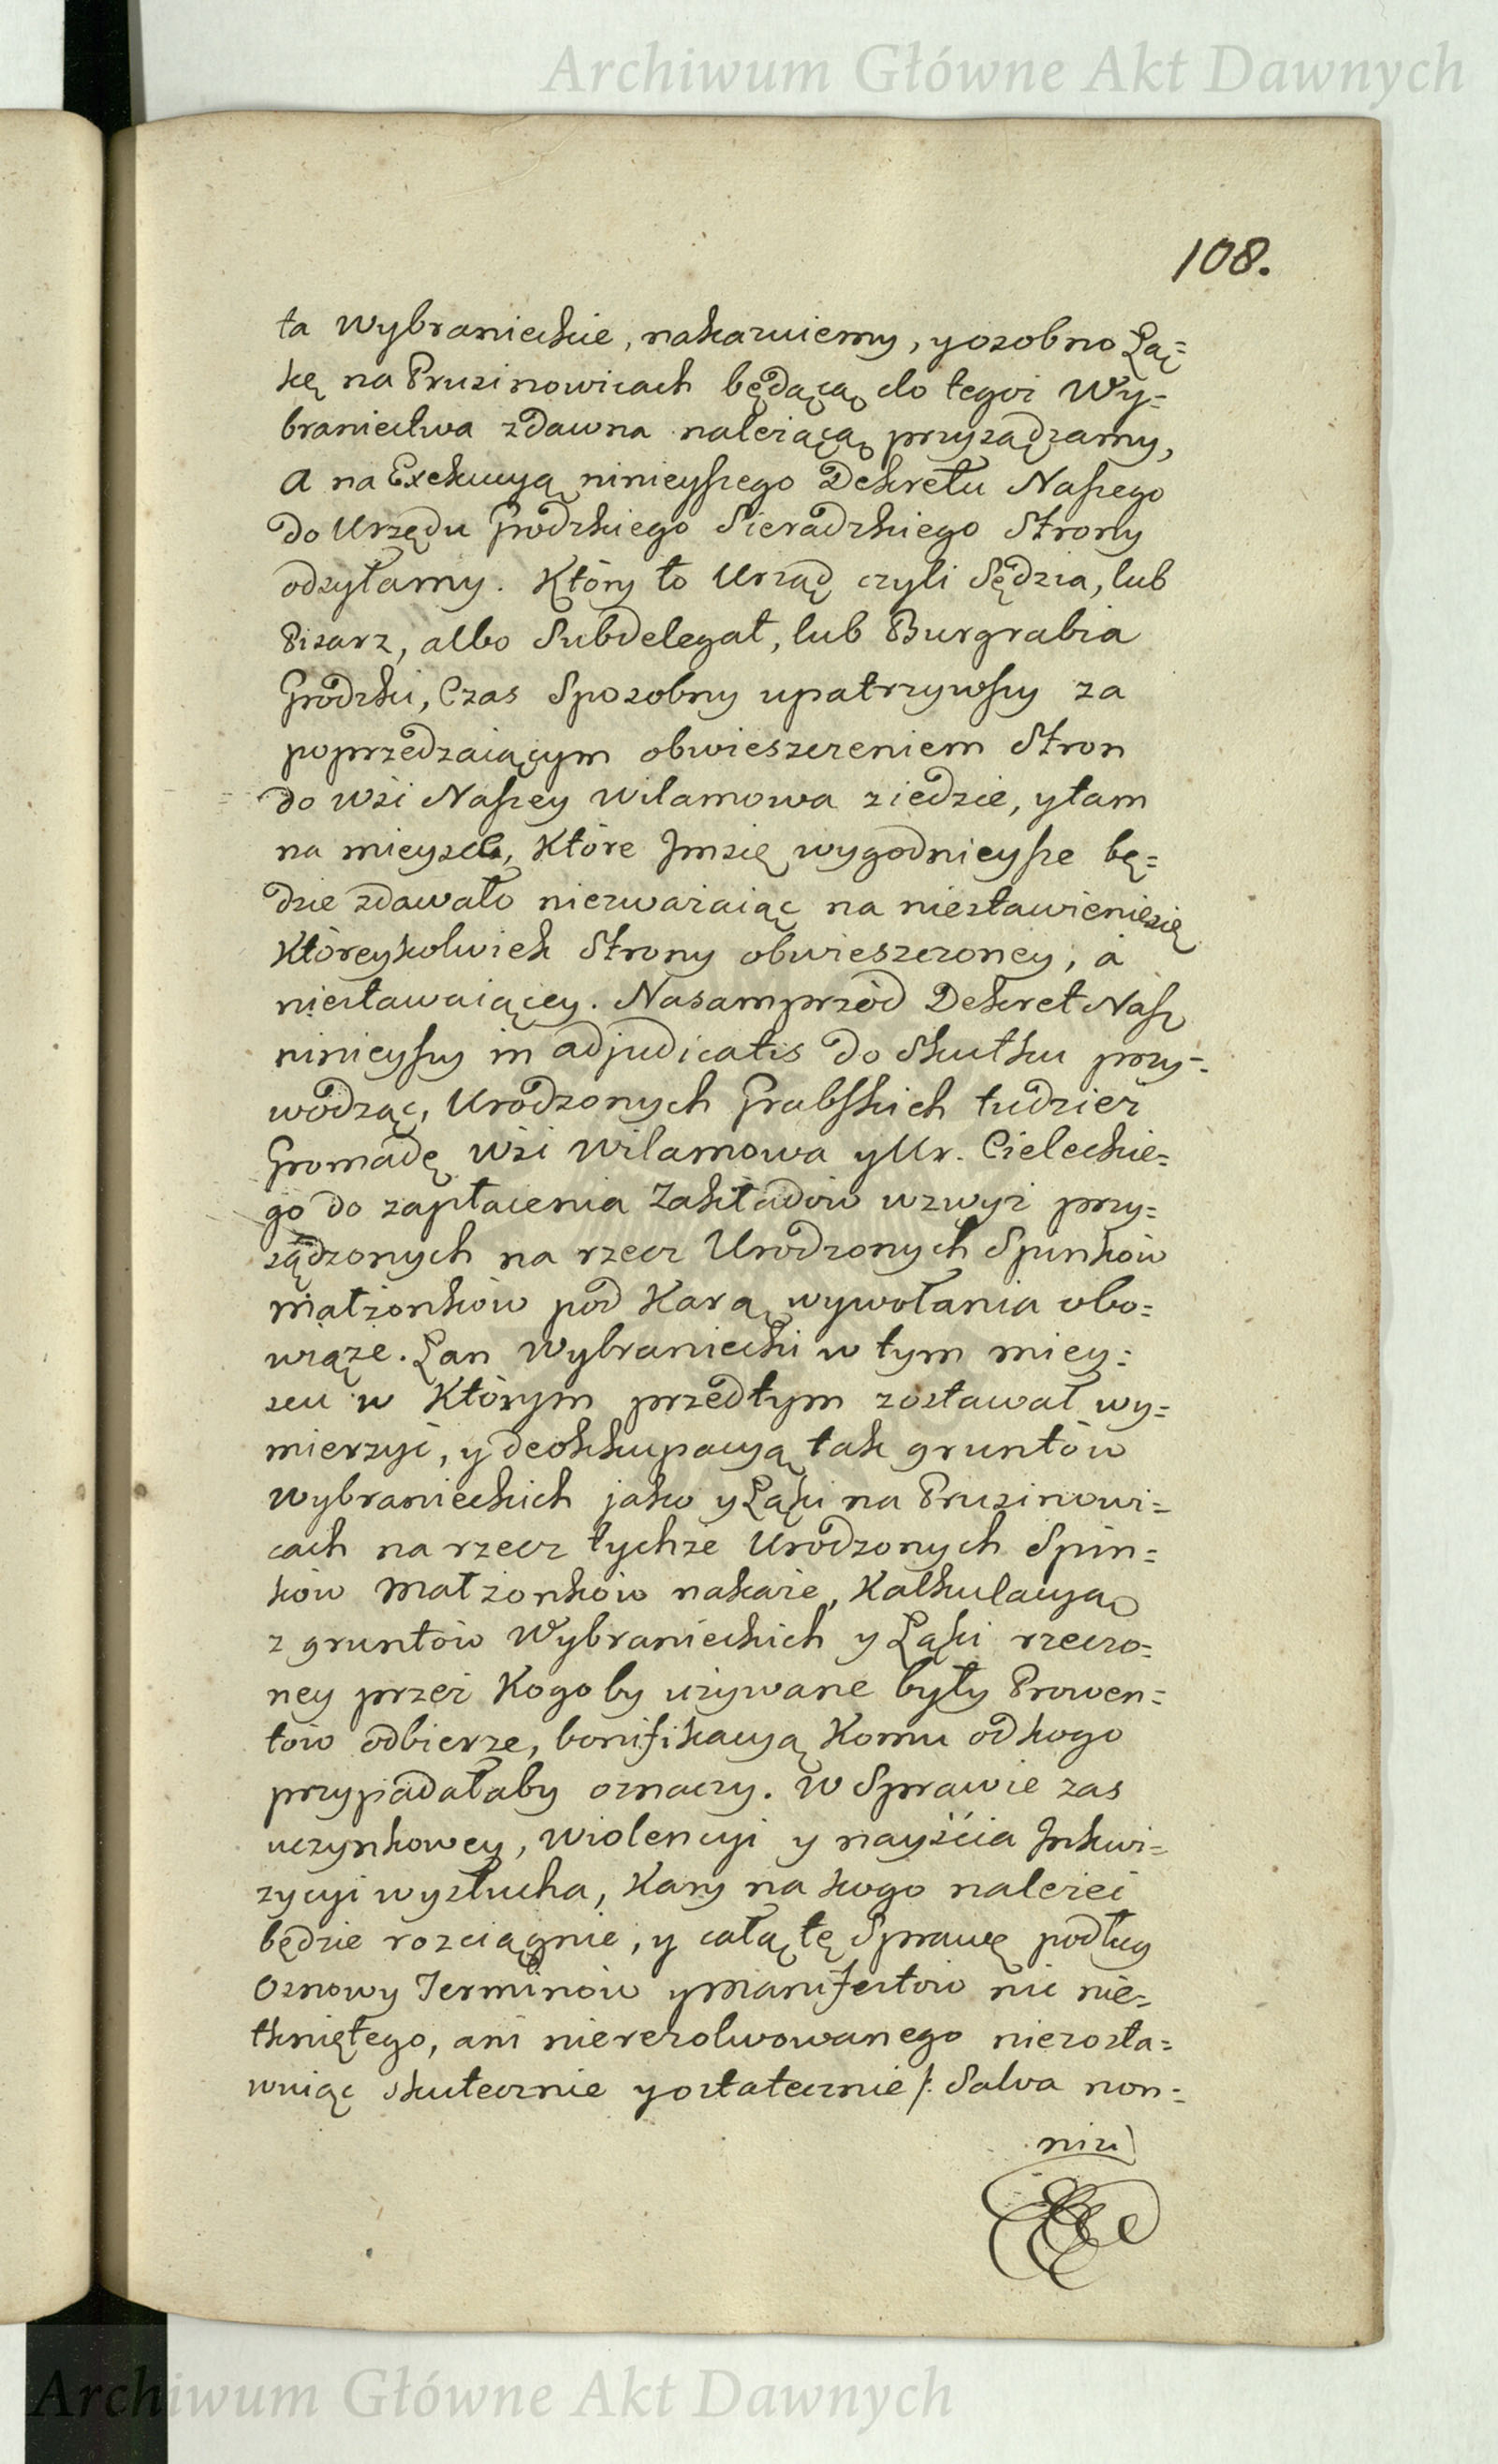 Archiwum Główne Akt Dawnych
108.
ta Wybranieckie, nakazuiemy, y osobno Łą=
kę na Prusinowicach będącą do tegoż Wy=
braniectwa zdawna należącą przysądzamy,
A na Exekucyą ninieyszego Dekretu Naszego
do Urzędu Grodzkiego Sieradzkiego Strony
odsyłamy. Który to Urząd czyli Sędzia, lub
Pisarz, albo Subdelegat, lub Burgrabia
Grodzki, Czas Sposobny upatrzywszy za
poprzedzaiącym obwieszczeniem Stron
do Wsi Naszey Wilamowa ziedzie, y tam
na mieysce, Które Jm się wygodnieysze bę=
dzie zdawało niezważaiąc na niestawienie się
Któreykolwiek Strony obwieszczoney, a
niestawaiącey. Nasamprzód Dekret Nasz
ninieyszy in adjudicatis do Skutku przy=
wodząc, Urodzonych Grabskich tudzież
Gromadę Wsi Wilamowa y Ur. Cieleckie=
go do zapłacenia Zakładów wzwyż przy=
sądzonych na rzecz Urodzonych Spinków
małżonków pod Karą wywołania obo=
wiąże. Łan Wybraniecki w tym miey=
scu w Którym przedtym zostawał wy=
mierzyć, y deokkupacyą tak gruntów
Wybranieckich jako y Łąki na Prusinowi=
cach na rzecz tychże Urodzonych Spin=
ków Małżonków nakaże, Kalkulacyą
z gruntów Wybranieckich y Łąki rzeczo=
ney przez Kogo by używane były Prowen=
tów odbierze, bonifikacyą Komu od kogo
przypadałaby oznaczy. W Sprawie zas
uczynkowey, Wiolencyi y nayścia Jnkwi=
zycyi wysłucha, Kary na kogo należeć
będzie rozciągnie, y całą tę Sprawę podług
Osnowy Terminów y Manifestów nic nie=
tkniętego, ani nierezolwowanego niezosta=
wuiąc skutecznie y ostatecznie /: Salva non=
nisi
Archiwum Główne Akt Dawnych